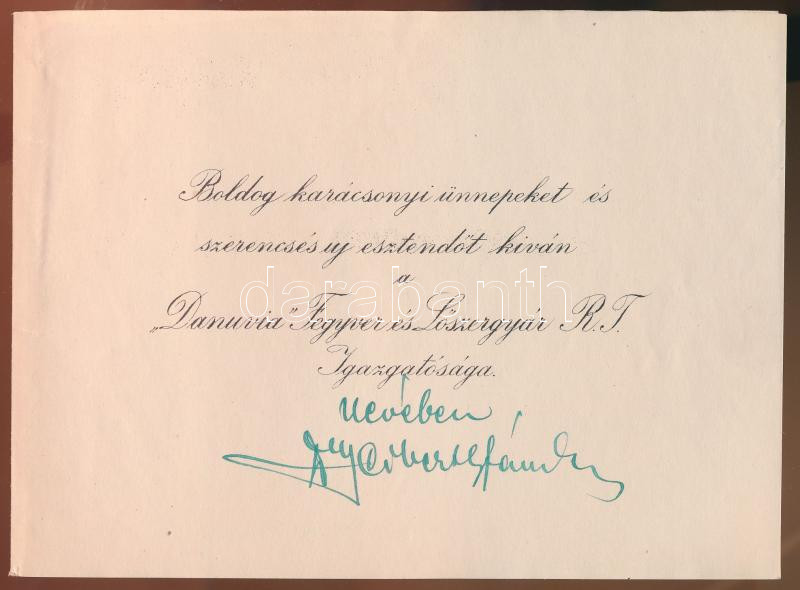 Boldog karácsonyi ünnepeket és
szerencsés uj esztendőt kiván
a
darabanth
„Danuvia” Fegyver és Lőszergyár R.T.
Igazgatósága.
nevében